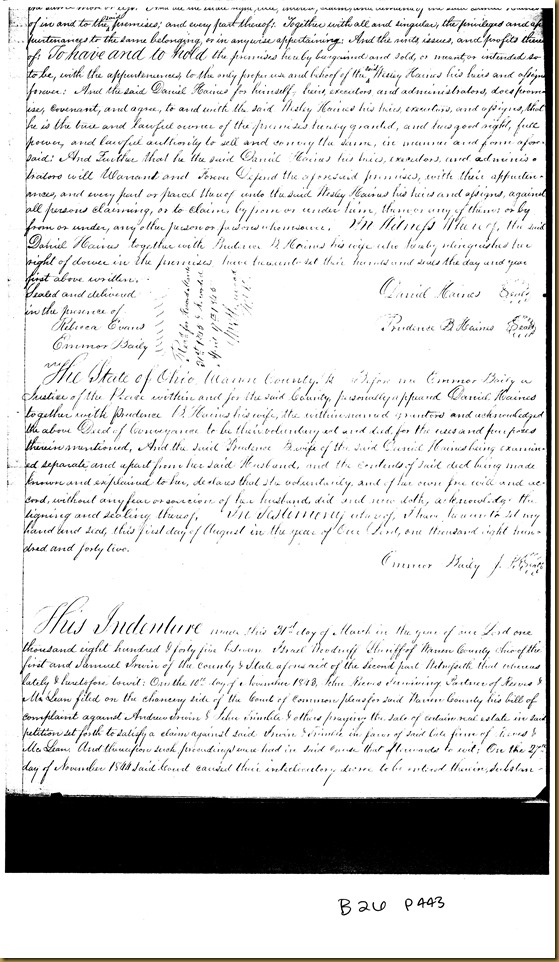 of in and to the premises; and every part thereof: Together with all and singular, the privileges and ap
purtenances to the same belonging, or in anywise appertaining: And the rents, issues, and profits there
of: To have and to hold the premises hereby bargained and sold, or meant, or intended so
to be, with the appurtenances, to the only proper use and behoof of the said Wesley Haines his heirs and assigns
forever: And the said Daniel Haines for himself, heirs, executors and administrators, does prom
ise, covenant, and agree, to and with the said Wesley Haines his heirs, executors, and assigns, that
he is the true and lawful owner of the premises hereby granted, and has good right, full
power, and lawful authority to sell and convey the same, in manner and form afore
said: And Further that he the said Daniel Haines his heirs, executors, and adminis
trators will Warrant and Forever Defend the aforesaid premises, with their appurten
ances, and every part or parcel thereof unto the said Wesley Haines his heirs and assigns, against
all persons claiming, or to claim, by from or under him, them or any of them: or by
from or under, any other person or persons whomsoever. In Witness Whereof, the said
Daniel Haines together with Prudence B. Haines his wife who hereby relinquishes her
right of dower in the premises have hereunto set their hands and seals the day and year
first above written.
Sealed and delivered
in the presence of
Rebecca Evans
Emmor Baily
Daniel Haines Seal
Prudence B. Haines Seal
The State of Ohio, Warren County, Ss Before me Emmor Baily a
Justice of the Peace within and for the said County, personally appeared Daniel Haines
together with prudence B. Haines his wife, the within named grantors and acknowledged
the above Deed of Conveyance to be their voluntary act and deed, for the uses and purposes
therein mentioned, And the said Prudence B. wife of the said Daniel Haines being examin
ed separate and apart from her said Husband, and the contents of said deed being made
known and explained to her, declares that she voluntarily, and of her own free will and ac
cord, without any fear or coercion of her husband, did and now doth, acknowledge the
signing and sealing thereof. In Testimony whereof, I have hereunto set my
hand and seal, this first day of August in the year of Our Lord, one thousand eight hun
dred and forty two.
Emmor Baily J. P. Seal
This Indenture made this 31st day of March in the year of our Lord one
thousand eight hundred & forty five between Israel Woodruff Sheriff of Warren County Ohio of the
first and Samuel Irwin of the County & State aforesaid of the second part Witnesseth that whereas
lately & heretofore towit: On the 10th day of November 1843, John Reeves Surviving Partner of Reeves &
McLean filed on the chancery side of the Court of Common pleas for said Warren County his bill of
complaint against Andrew Irwin & John Trimble & others praying the sale of certain real estate in said
petition set forth to satisfy a claim against said Irwin & Trimble in favor of said late firm of Reeves &
McLean. And therefore such proceedings were had in said cause that afterwards to wit: On the 27th
day of November 1844 said Court caused their interlocutory decree to be entered therein, substan-
B26 P443